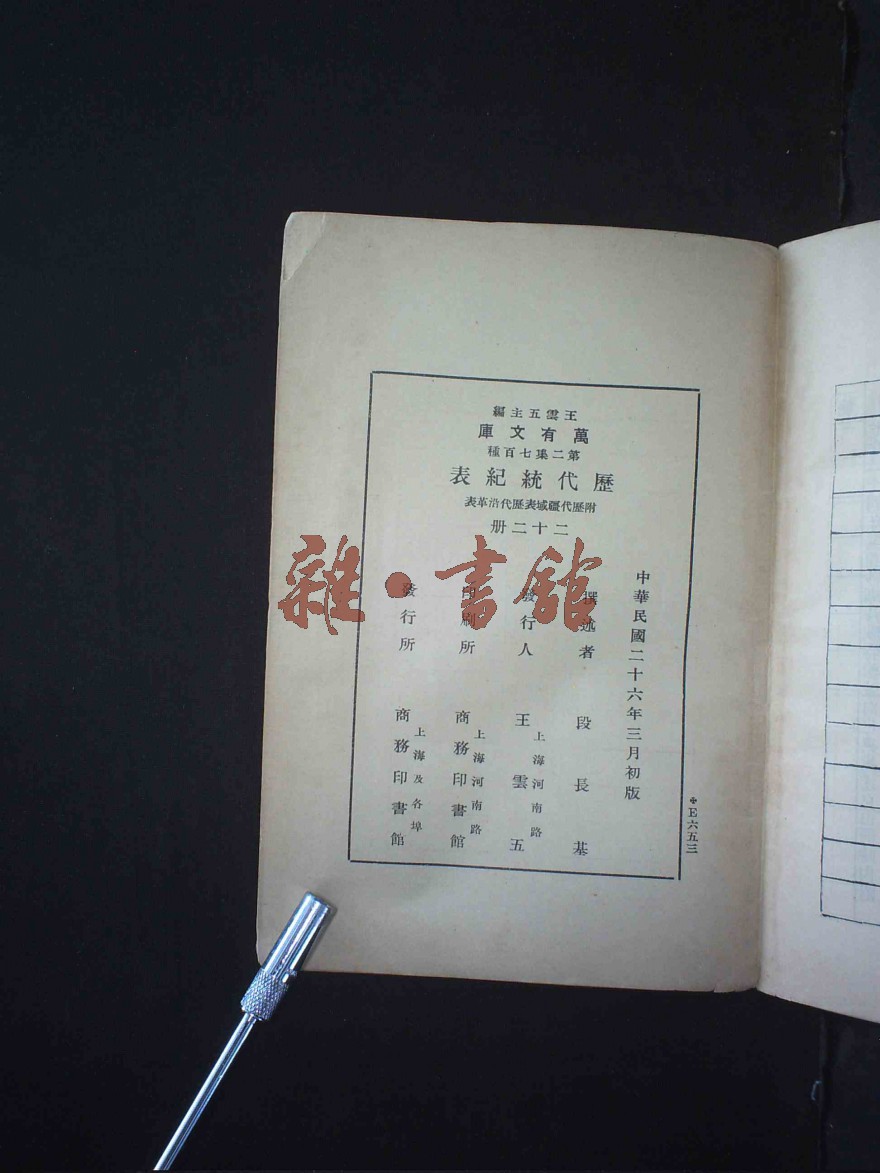 王雲五主編
萬有文庫
第二集七百種
歷代統紀表
附歷代疆域表歷代沿革表
二十二册
中華民國二十六年三月初版
撰述者 段長基
發行人 王雲五
上海河南路
印刷所 商務印書館
上海河南路
發行所 商務印書館
上海及各埠
✠E六五三
雜·書館